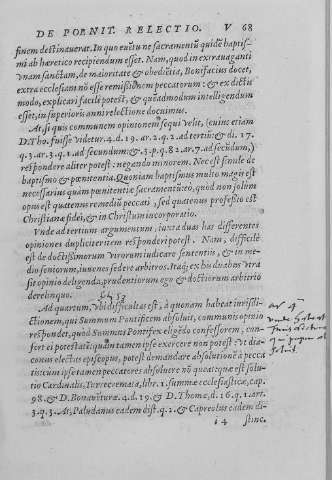 DE POENIT. RELECTIO. V 68
finem destinaverat. In quo euẽtu ne sacramentũ quidẽ baptis-
mi ab haretico recipiendum esset. Nam, quod in extrauaganti
vnam sanctam, de maioritate & obedĩtia, Bonifacius docet,
extra ecclesiam nõ esse remissionem peccatorum: & ex dictis
modo, explicari facile potest, & quẽadmodum intelligendum
esset, in superioris anni relectione docuimus.
At, si quis communem opinionem sequi velit, (cuius etiam
D. Tho. fuisse videtur. 4. d. 19. ar. 2. q. 2. ad tertiũ: & di. 17.
q. 3. ar. 3. q. 1. ad secundum: & 3. p. q. 82. ar. 7. ad secũdum,)
respõdere aliter potest: negando minorem. Nec est simile de
baptismo & pœnitentia. Quoniam baptismus multo magis est
necessarius quam pœnitentiæ sacramentũ eo, quod non solum
opus est quatenus remediũ peccati, sed quatenus professio est
Christianæ fidei, & in Christum incorporatio.
Vnde ad tertium argumentum, iuxta duas has differentes
opiniones dupliciter item respõderi potest. Nam, difficilè
est de doctissimorum virorum iudicare sententiis, & in me-
dio seniorum, iuuenes sedere arbitros. Itaq; ex his duabus vtra
sit opinio deligenda, prudentiorum ego & doctiorum arbitrio
derelinquo.
Ad quartum, Vbi difficultas est, à quonam habeat iurisdi-
ctionem, qui Summus Pontificem absoluit, communis opinio
respõdet, quod Summus Pontifex eligẽdo confessorem, con-
fert ei potestatẽ: quam tamen ipse exercere non potest. Vt dia-
conus electus episcopus, potest demandare absolutionẽ à pecca
tis: cum ipse tamen peccatores absoluere nõ queat: quæ est solu-
tio Cardinalis, Turrecremata, libr. 1. summæ ecclesiasticæ, cap.
98. & D. Bonauẽturæ. 4. d. 19. & D. Thomæ, d. 16. q. 1. art.
3. q. 3. At, Paludanus eadem dist. q. 2. & Capreolus eadem di-
i 4 stinc.